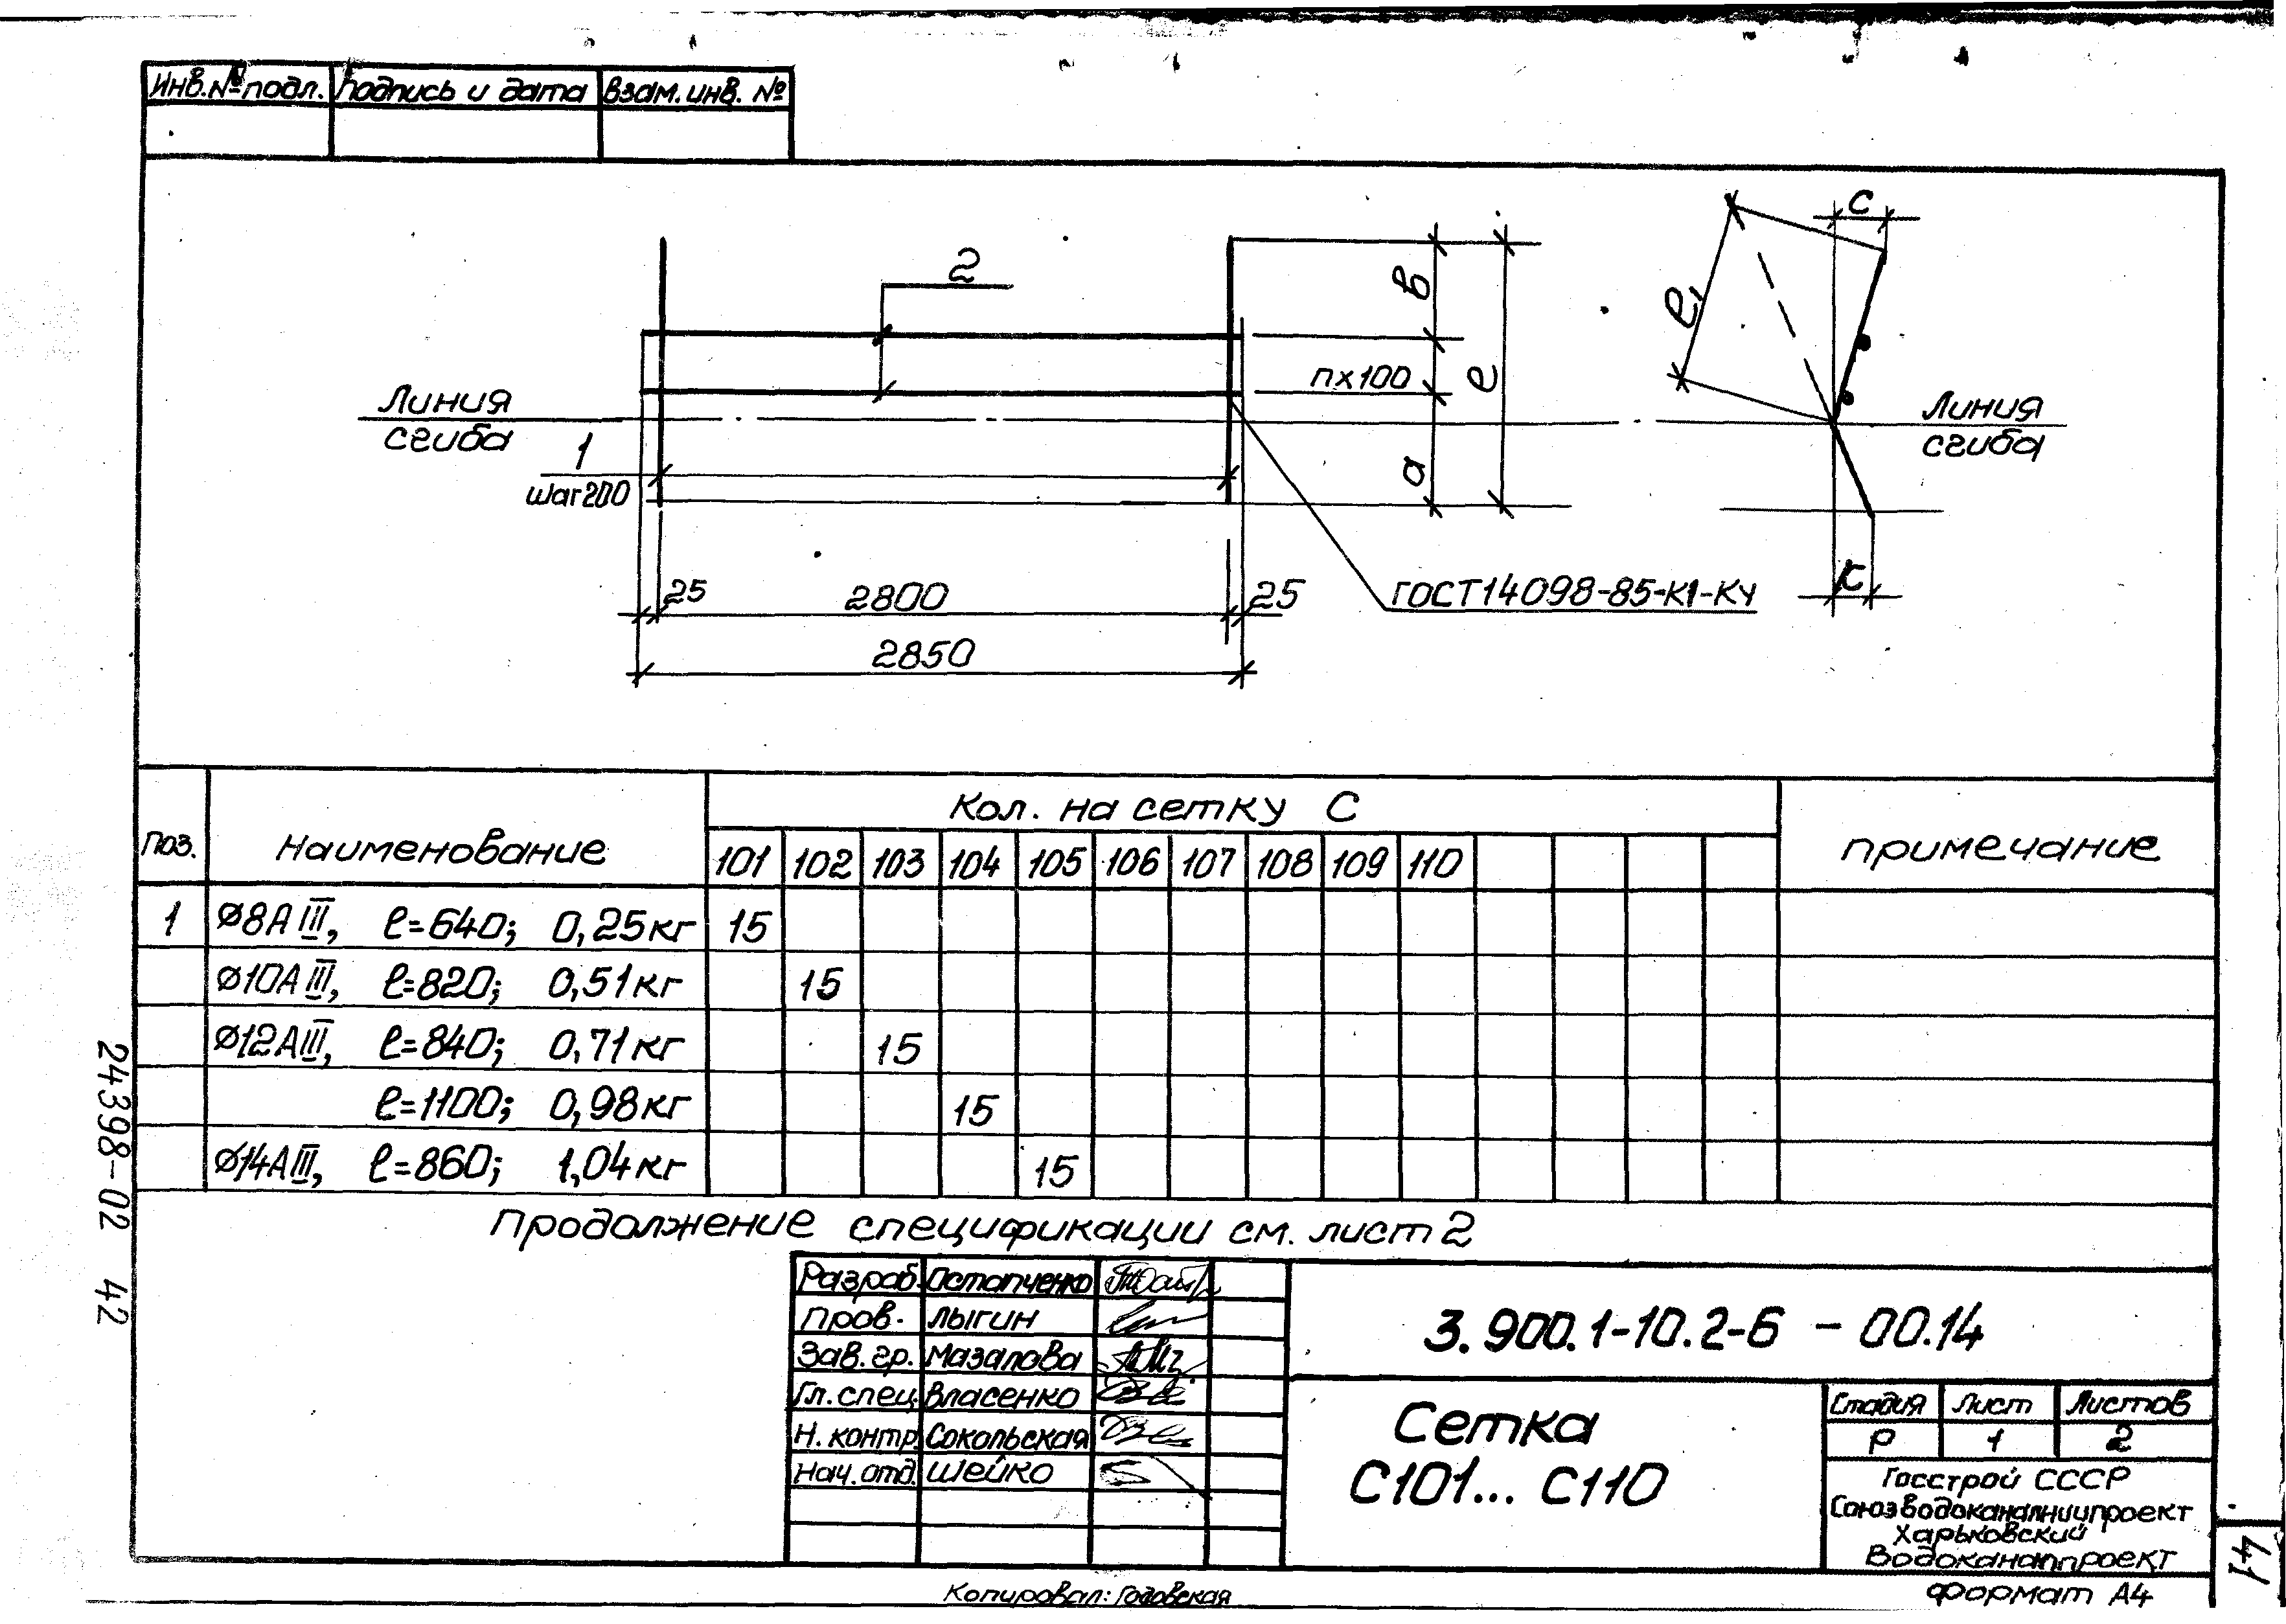 Инв.№ подл. Подпись и дата Взам. инв. №
2
c
в
е₁
nx100
е
Линия
сгиба
1
шаг 200
а
Линия
сгиба
25 2800 25
ГОСТ 14098-85-К1-Ку
к
2850
Поз. Наименование Кол. на сетку С Примечание
101 102 103 104 105 106 107 108 109 110
1 ⌀8АIII, ℓ=640; 0,25кг 15
⌀10АIII, ℓ=820; 0,51кг 15
⌀12АIII, ℓ=840; 0,71кг 15
ℓ=1100; 0,98кг 15
⌀14АIII, ℓ=860; 1,04кг 15
Продолжение спецификации см. лист 2
24398-02 42
Разраб. Остапченко
Пров. Лыгин
Зав. гр. Мазалова
Гл. спец. Власенко
Н. контр. Сокольская
Нач. отд. Шейко
3.900.1-10.2-6 - 00.14
Сетка
С101... С110
Стадия Лист Листов
Р 1 2
Госстрой СССР
Союзводоканалниипроект
Харьковский
Водоканалпроект
Копировал: Годовская
Формат А4
41